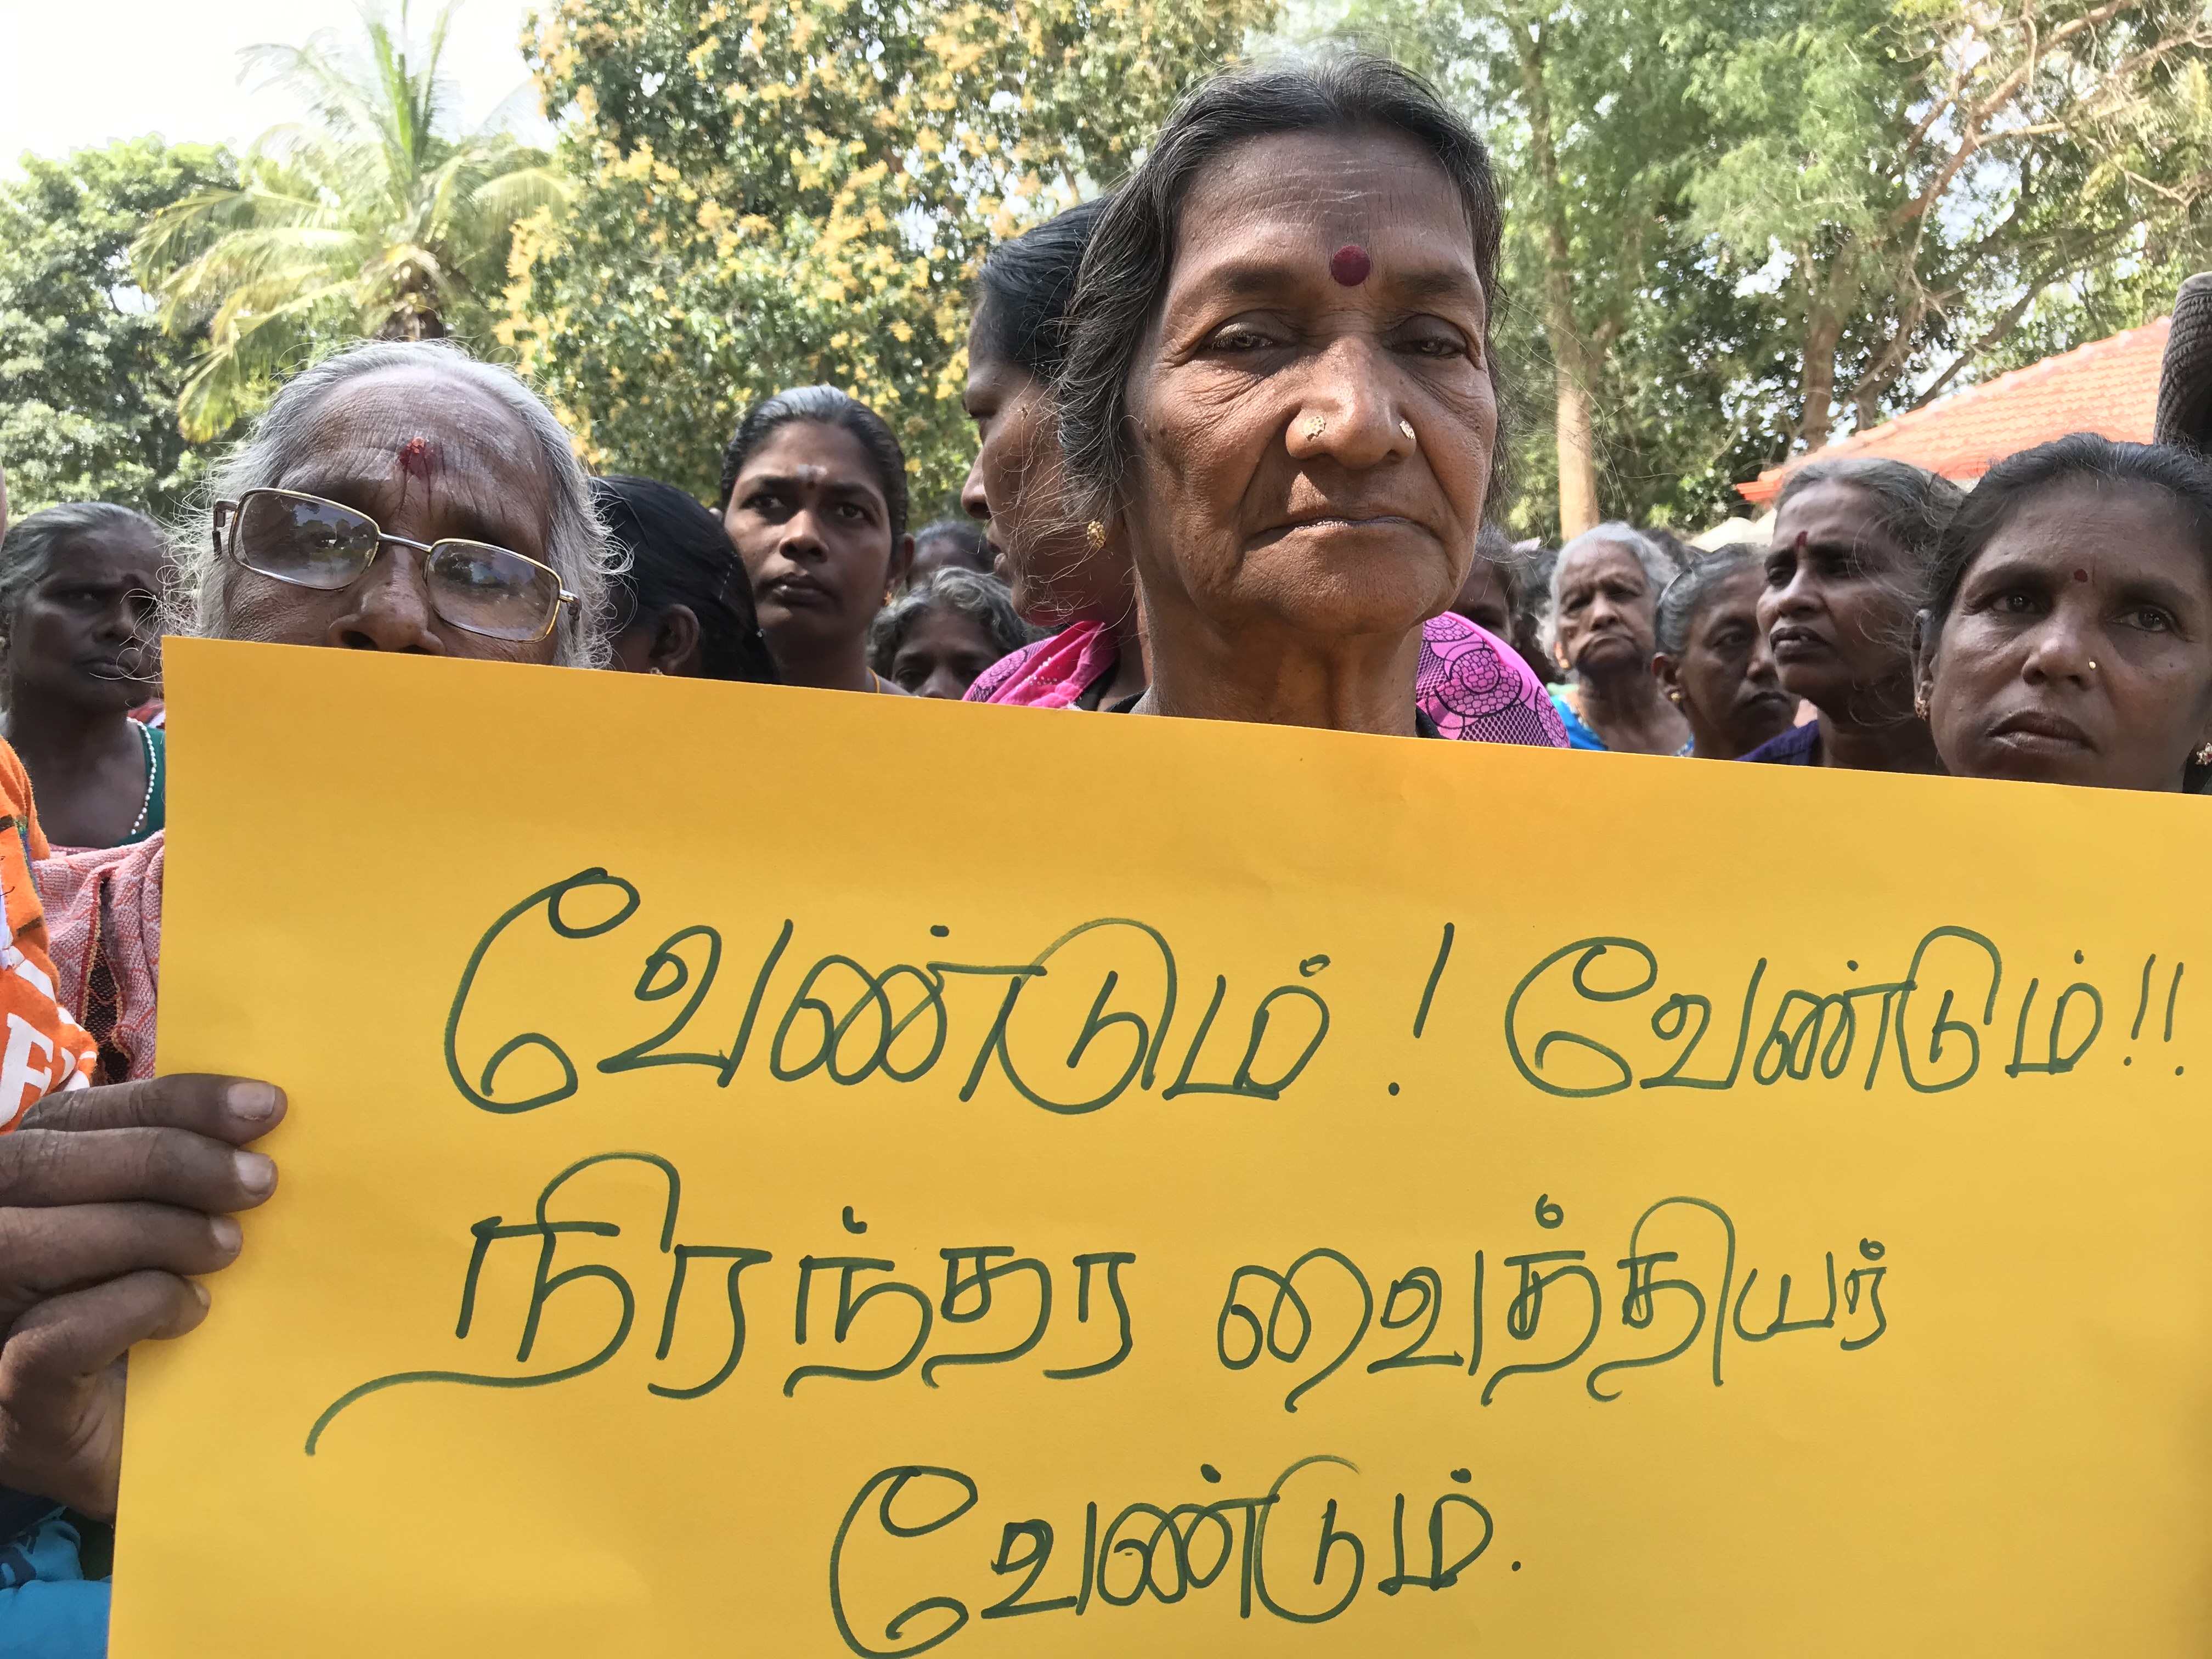 வேண்டும்! வேண்டும்!!
நிரந்தர வைத்தியர்
வேண்டும்.